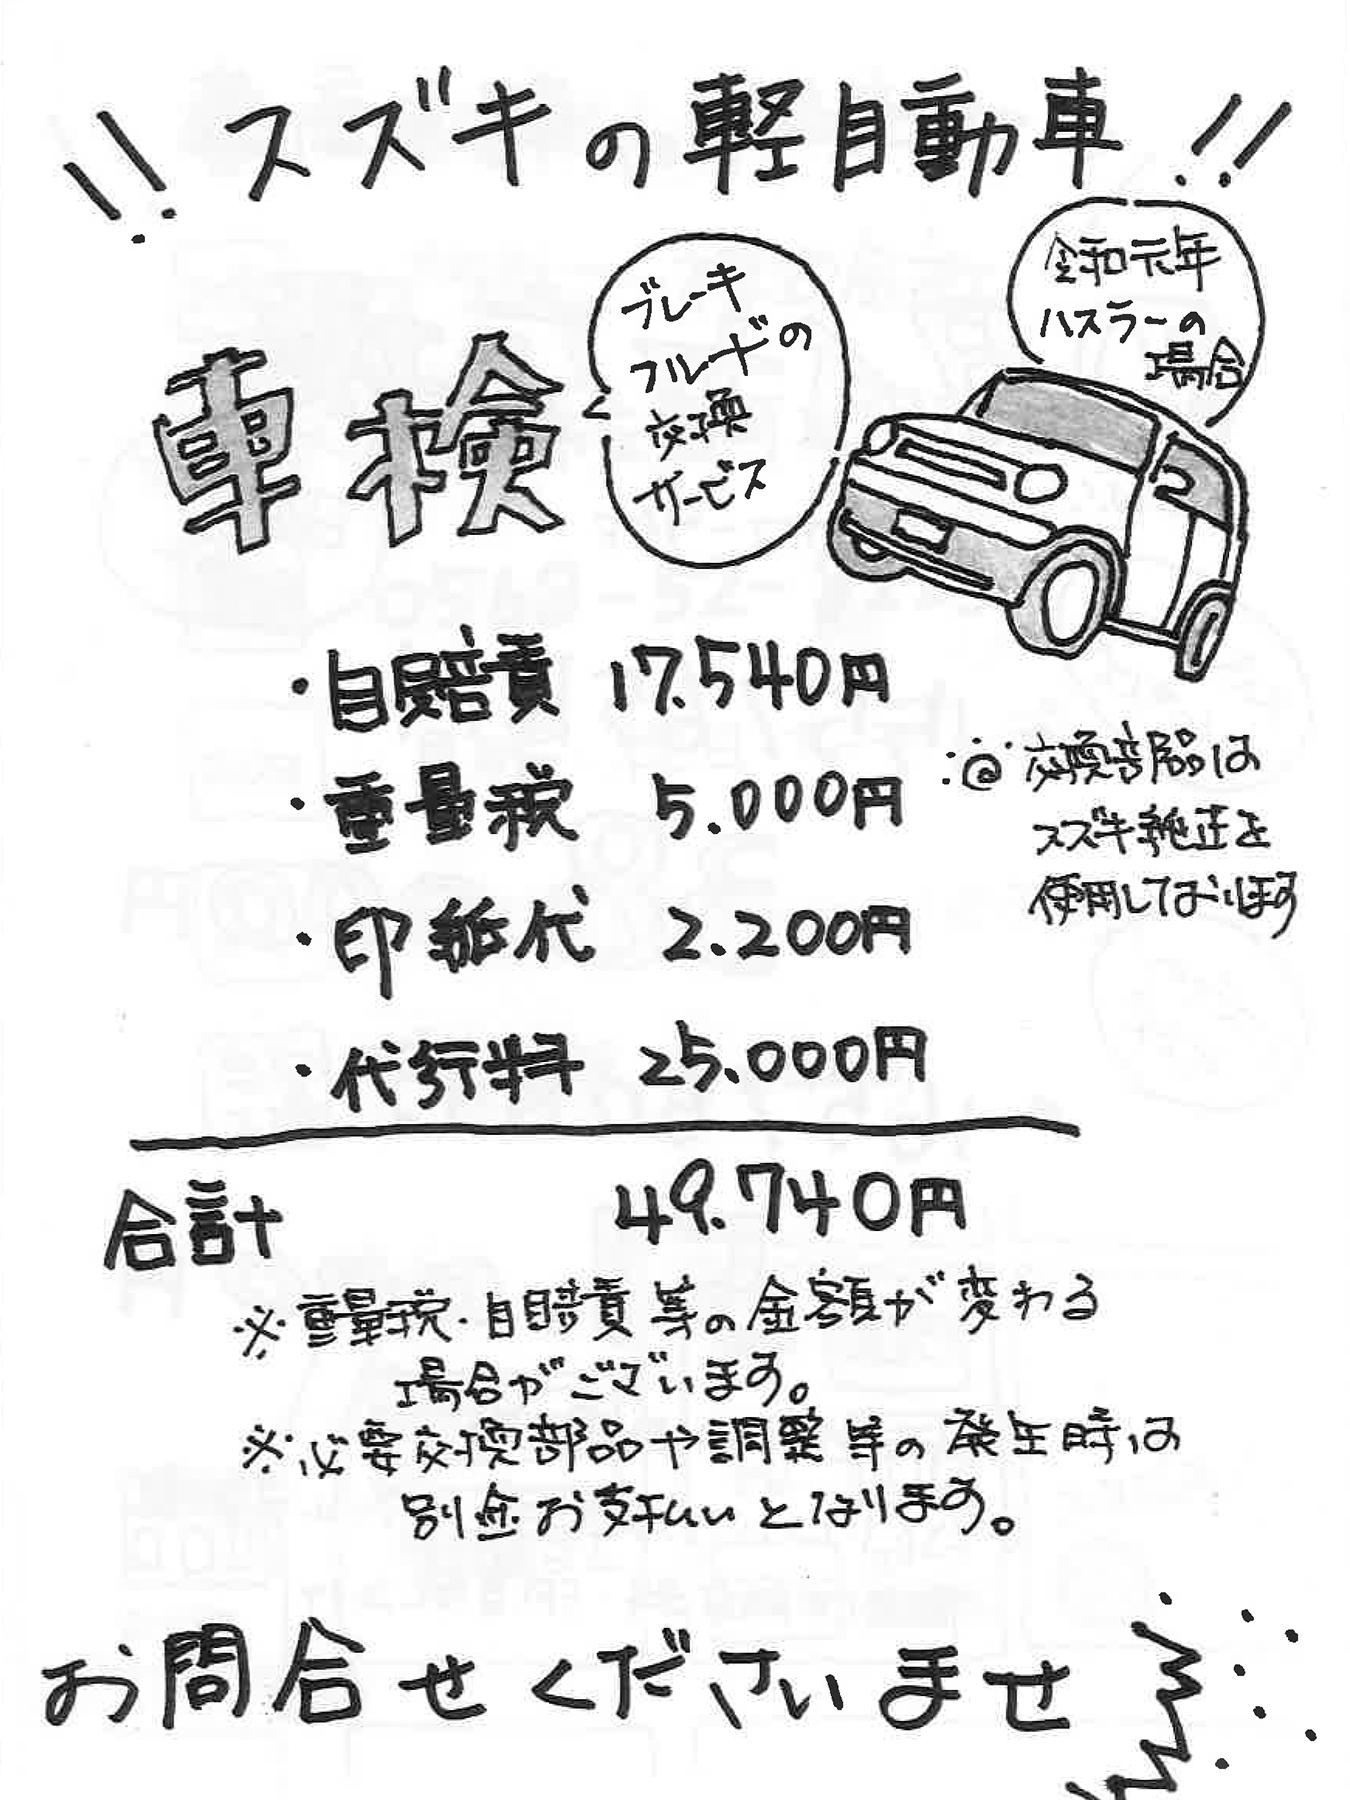 スズキの軽自動車!!
令和元年
ハスラーの
場合
車検
ブレーキ
フルードの
交換
サービス
・自賠責 17.540円
・重量税 5.000円
・印紙代 2.200円
・代行料 25.000円
◎交換部品は
スズキ純正を
使用しております
合計 49.740円
※重量税・自賠責等の金額が変わる
場合がございます。
※必要交換部品や調整等の発生時は
別途お支払いとなります。
お問合せくださいませ